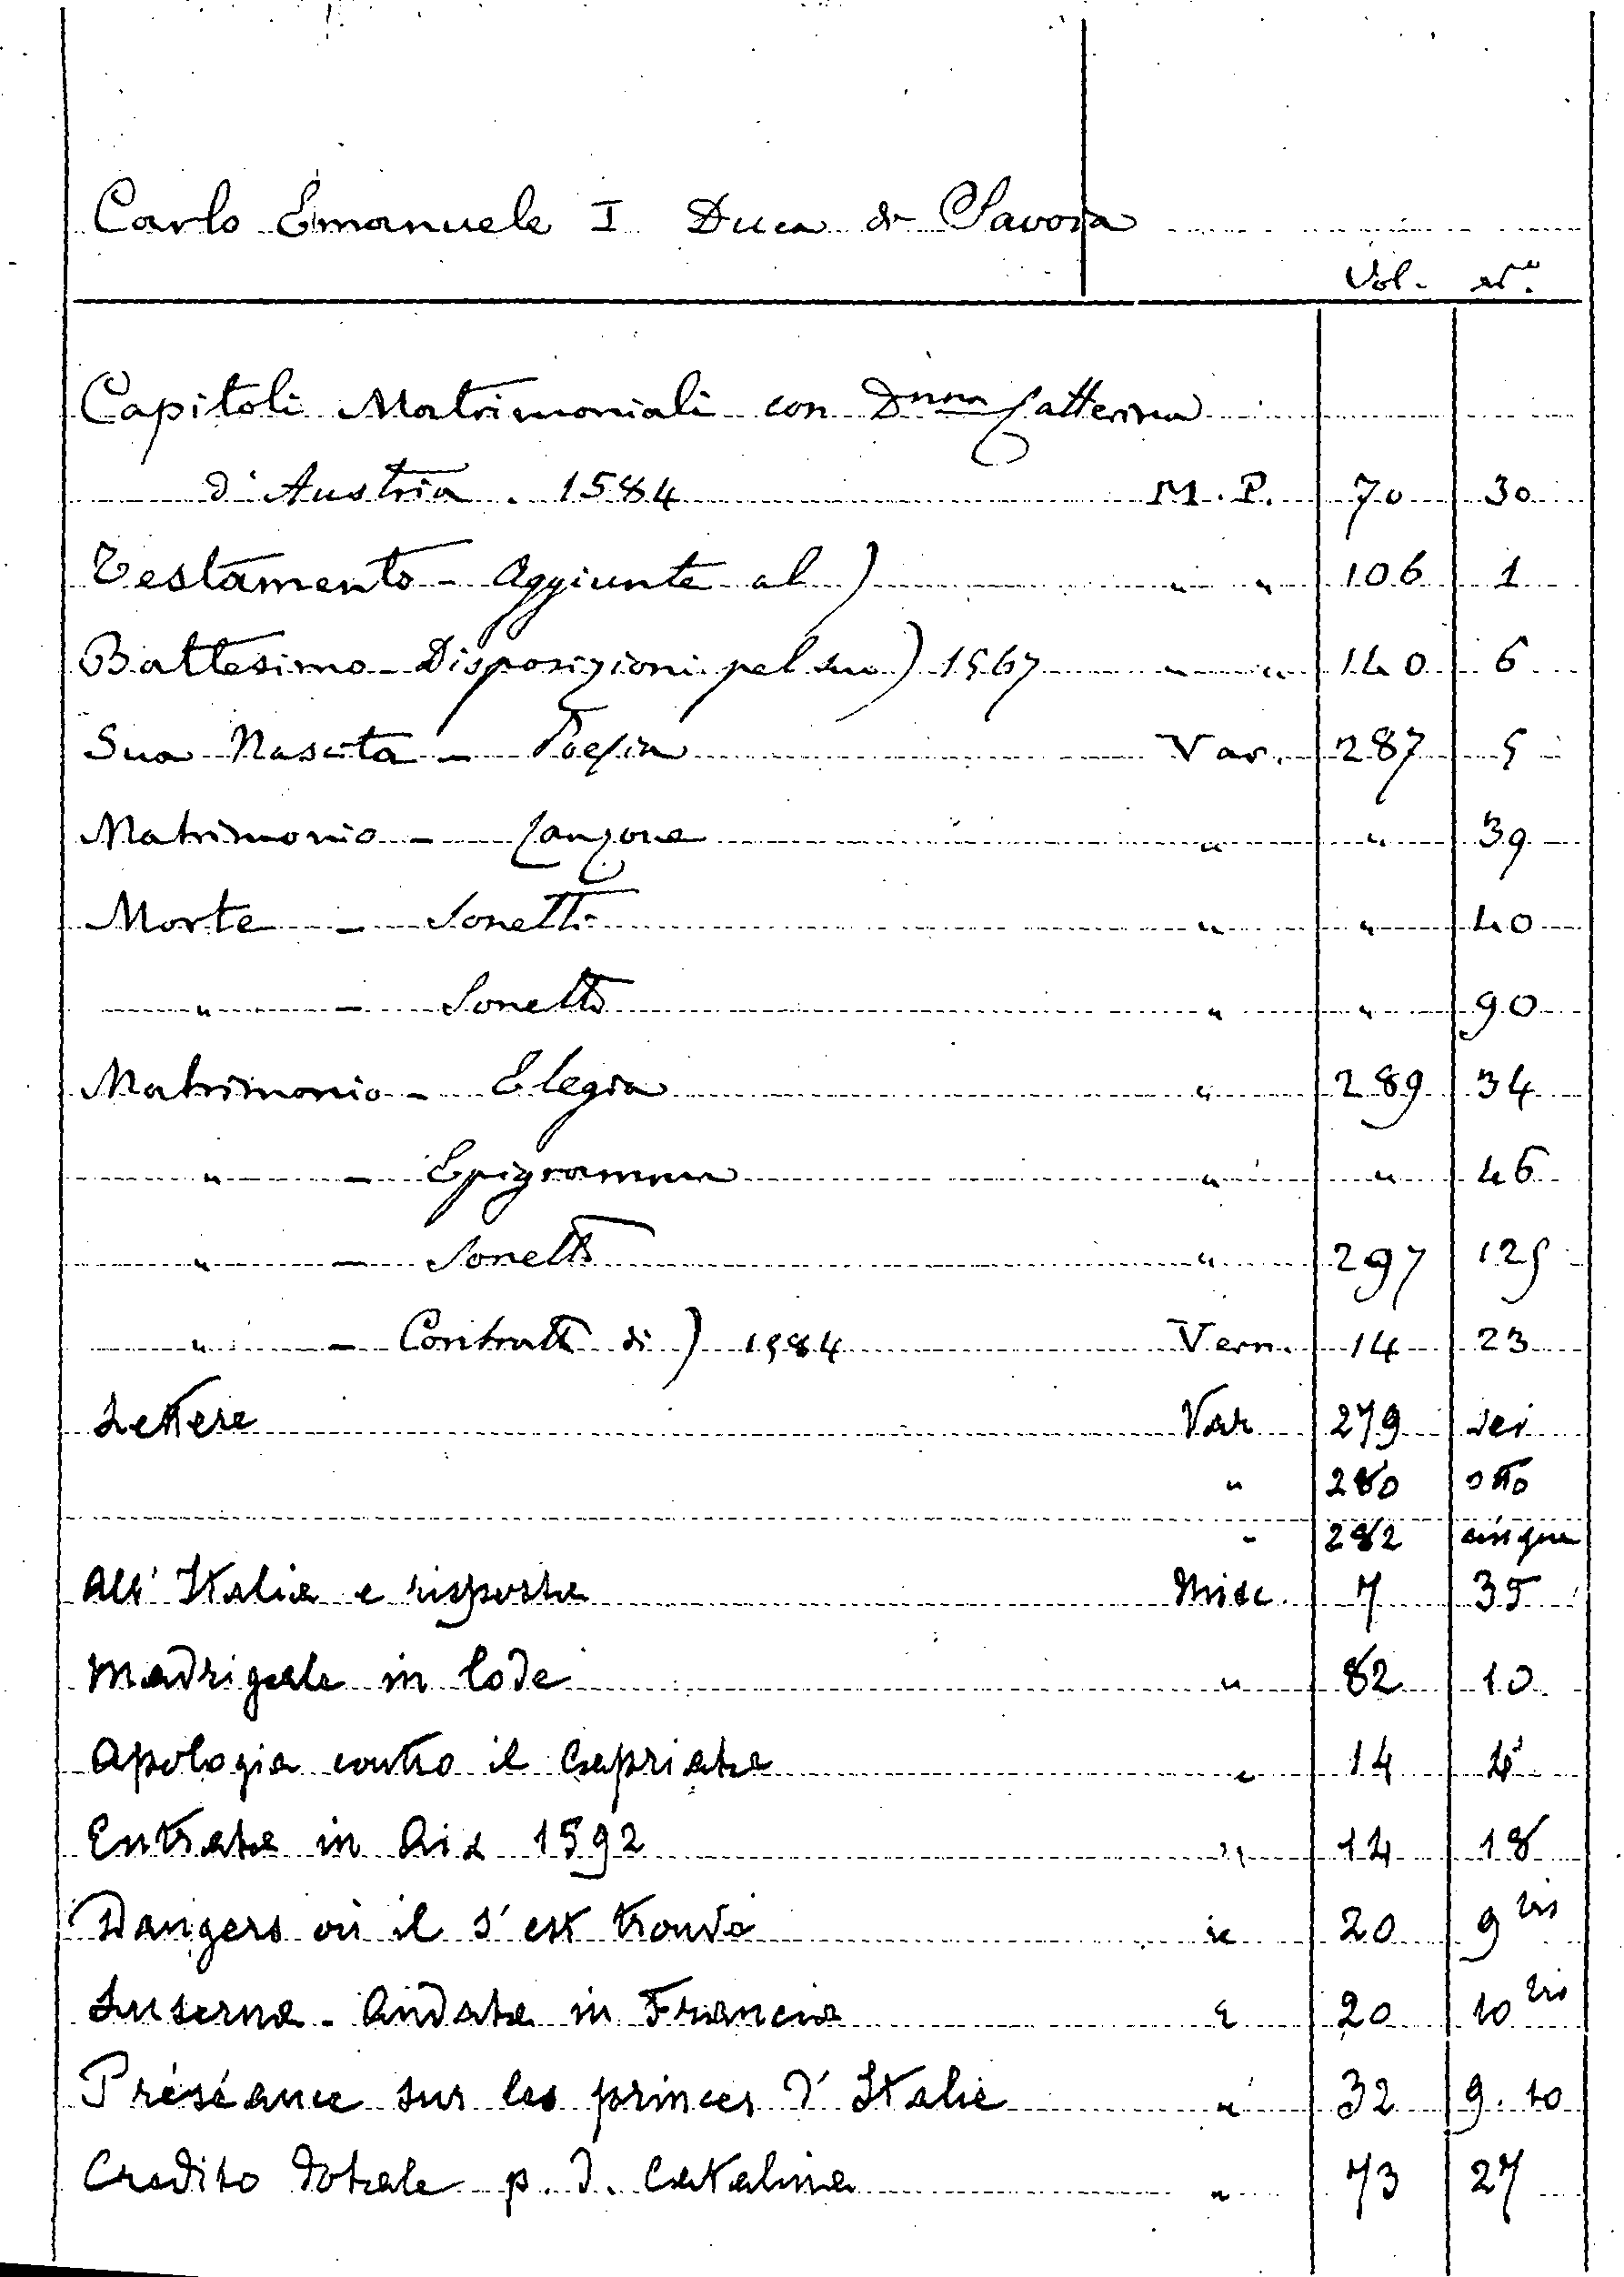 Carlo Emanuele I Duca di Savoia
Vol. N.º
Capitoli Matrimoniali con Dnna Catterina
d'Austria. 1584 M. P. 70 30
Testamento - Aggiunte al) " " 106 1
Battesimo - Disposizioni pel suo) 1567 " " 140 6
Sua Nascita - Poesia Var. 287 5
Matrimonio - Canzone " " 39
Morte - Sonetti " " 40
" - Sonetto " " 90
Matrimonio - Elegia " 289 34
" - Epigramma " " 46
" - Sonetto " 297 125
" - Contratto di) 1584 Vern. 14 23
Lettere Var 279 sei
" 280 otto
" 282 cinque
All'Italia e risposta Misc. 7 35
Madrigale in lode " 82 10
Apologia contro il Capriata " 14
Entrata in Aix 1592 " 14 18
Dangers où il s'est trouvé " 20 9 bis
Luserna - Andata in Francia " 20 10 bis
Préséance sur les princes d'Italie " 32 9. 10
Credito dotale p. D. Catalina " 73 27